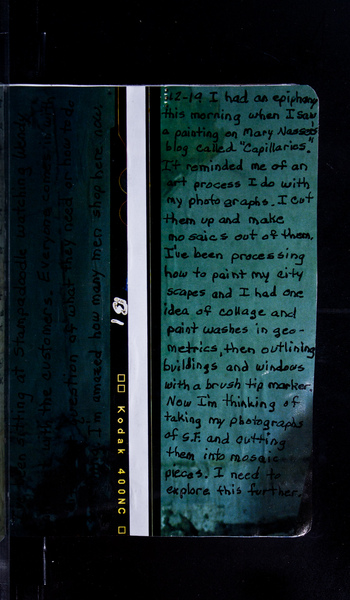 12-19 I had an epiphany
this morning when I saw
a painting on Mary Nasser's
blog called "Capillaries."
It reminded me of an
art process I do with
my photographs. I cut
them up and make
mosaics out of them.
I've been processing
how to paint my city
scapes and I had one
idea of collage and
paint washes in geo-
metrics, then outlining
buildings and windows
with a brush tip marker.
Now I'm thinking of
taking my photographs
of S.F. and cutting
them into mosaic
pieces. I need to
explore this further.
sitting at Stampadoodle watching Wendy
with the customers. Everyone
of what they need or how to do
I'm amazed how many men shop here now.
Kodak 400NC